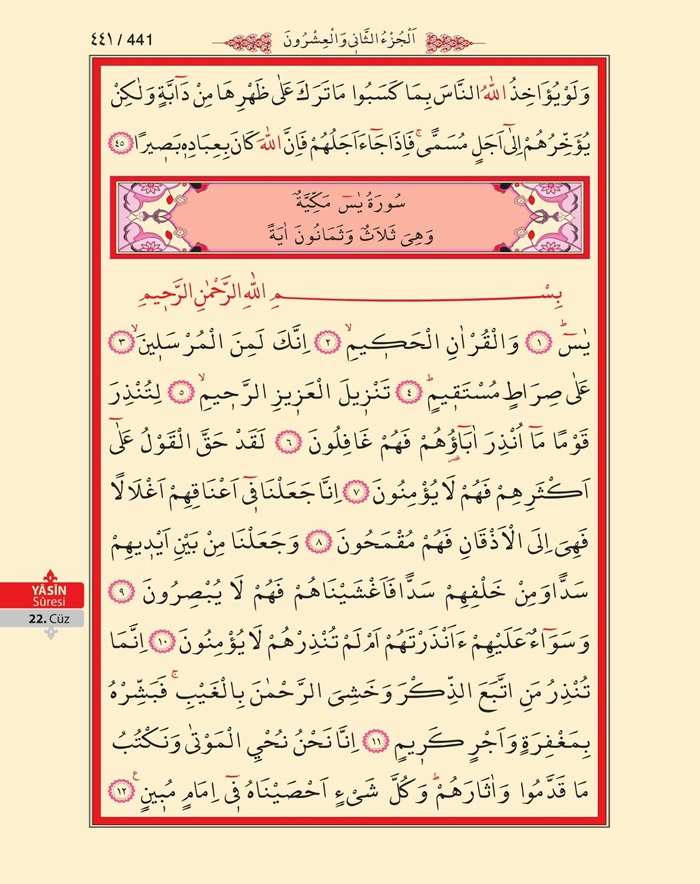 ٤٤١ / 441
اَلْجُزْءُ الثَّانِي وَالْعِشْرُونَ
وَلَوْ يُؤَاخِذُ اللّٰهُ النَّاسَ بِمَا كَسَبُوا مَا تَرَكَ عَلٰى ظَهْرِهَا مِنْ دَٓابَّةٍ وَلٰكِنْ
يُؤَخِّرُهُمْ اِلٰٓى اَجَلٍ مُسَمًّىۚ فَاِذَا جَٓاءَ اَجَلُهُمْ فَاِنَّ اللّٰهَ كَانَ بِعِبَادِهٖ بَصٖيرًا ﴿٤٥﴾
سُورَةُ يٰسٓ مَكِّيَّةٌ
وَهِيَ ثَلَاثٌ وَثَمَانُونَ اٰيَةً
بِسْمِ اللّٰهِ الرَّحْمٰنِ الرَّحٖيمِ
يٰسٓۜ ﴿١﴾ وَالْقُرْاٰنِ الْحَكٖيمِۙ ﴿٢﴾ اِنَّكَ لَمِنَ الْمُرْسَلٖينَۙ ﴿٣﴾
عَلٰى صِرَاطٍ مُسْتَقٖيمٍۜ ﴿٤﴾ تَنْزٖيلَ الْعَزٖيزِ الرَّحٖيمِۙ ﴿٥﴾ لِتُنْذِرَ
قَوْمًا مَٓا اُنْذِرَ اٰبَٓاؤُ۬هُمْ فَهُمْ غَافِلُونَ ﴿٦﴾ لَقَدْ حَقَّ الْقَوْلُ عَلٰٓى
اَكْثَرِهِمْ فَهُمْ لَا يُؤْمِنُونَ ﴿٧﴾ اِنَّا جَعَلْنَا فٖٓي اَعْنَاقِهِمْ اَغْلَالًا
فَهِيَ اِلَى الْاَذْقَانِ فَهُمْ مُقْمَحُونَ ﴿٨﴾ وَجَعَلْنَا مِنْ بَيْنِ اَيْدٖيهِمْ
سَدًّا وَمِنْ خَلْفِهِمْ سَدًّا فَاَغْشَيْنَاهُمْ فَهُمْ لَا يُبْصِرُونَ ﴿٩﴾
وَسَوَٓاءٌ عَلَيْهِمْ ءَاَنْذَرْتَهُمْ اَمْ لَمْ تُنْذِرْهُمْ لَا يُؤْمِنُونَ ﴿١٠﴾ اِنَّمَا
تُنْذِرُ مَنِ اتَّبَعَ الذِّكْرَ وَخَشِيَ الرَّحْمٰنَ بِالْغَيْبِۚ فَبَشِّرْهُ
بِمَغْفِرَةٍ وَاَجْرٍ كَرٖيمٍ ﴿١١﴾ اِنَّا نَحْنُ نُحْيِ الْمَوْتٰى وَنَكْتُبُ
مَا قَدَّمُوا وَاٰثَارَهُمْۜ وَكُلَّ شَيْءٍ اَحْصَيْنَاهُ فٖٓي اِمَامٍ مُبٖينٍ ﴿١٢﴾ ع
YÂSÎN
Sûresi
22. Cüz